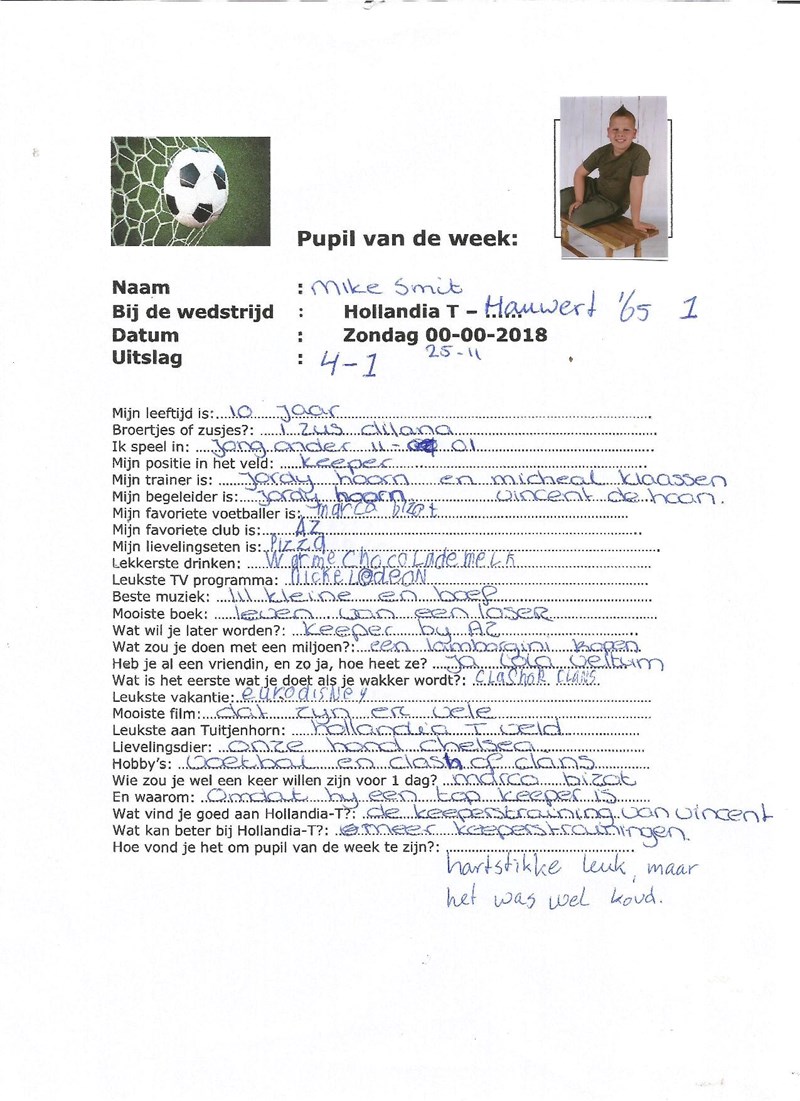 Pupil van de week:
Naam : Mike Smit
Bij de wedstrijd : Hollandia T – Hauwert '65 1
Datum : Zondag 00-00-2018
25-11
Uitslag : 4-1
Mijn leeftijd is: 10 jaar
Broertjes of zusjes?: 1 zus dilana
Ik speel in: jong onder 11- 01
Mijn positie in het veld: keeper
Mijn trainer is: Jordy hoorn en micheal klaassen
Mijn begeleider is: Jordy hoorn vincent de haan.
Mijn favoriete voetballer is: marco bizot
Mijn favoriete club is: AZ
Mijn lievelingseten is: Pizza
Lekkerste drinken: Warme chocolademelk
Leukste TV programma: nickelodeon
Beste muziek: lil kleine en boef
Mooiste boek: leven van een loser
Wat wil je later worden?: keeper by AZ
Wat zou je doen met een miljoen?: een lamborgini kopen
Heb je al een vriendin, en zo ja, hoe heet ze? ja lola veltum
Wat is het eerste wat je doet als je wakker wordt?: clashof clans
Leukste vakantie: eurodisney
Mooiste film: dat zyn er vele
Leukste aan Tuitjenhorn: hollandia T veld
Lievelingsdier: onze hond chelsea
Hobby's: voetbal en clash of clans
Wie zou je wel een keer willen zijn voor 1 dag? marco bizot
En waarom: Omdat hy een top keeper is
Wat vind je goed aan Hollandia-T?: de keeperstraining van vincent
Wat kan beter bij Hollandia-T?: meer keeperstrainingen.
Hoe vond je het om pupil van de week te zijn?:
hartstikke leuk, maar
het was wel koud.